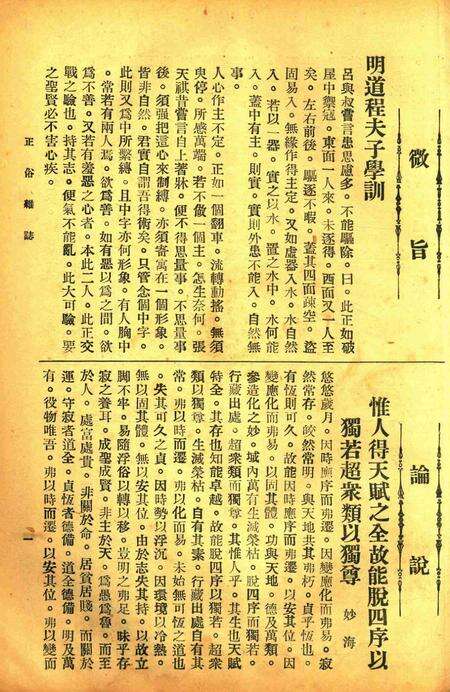 微旨
明道程夫子學訓
呂與叔嘗言患思慮多。不能驅除。曰。此正如破
屋中禦寇。東面一人來。未逐得。西面又一人至
矣。左右前後。驅逐不暇。蓋其四面疎空。盜
固易入。無緣作得主定。又如虛器入水。水自然
入。若以一器。實之以水。置之水中。水何能
入。蓋中有主。則實。實則外患不能入。自然無
事。
人心作主不定。正如一個翻車。流轉動搖。無須
臾停。所感萬端。若不做一個主。怎生奈何。張
天祺昔嘗言自上著牀。便不得思量事。不思量事
後。須强把這心來制縛。亦須寄寓在一個形象。
皆非自然。君實自謂吾得術矣。只管念個中字。
此則又爲中所繫縛。且中字亦何形象。有人胸中
。常若有兩人焉。欲爲善。如有惡以爲之間。欲
爲不善。又若有羞惡之心者。本此二人。此正交
戰之驗也。持其志。便氣不能亂。此大可驗。要
之聖賢必不害心疾。
論說
惟人得天賦之全故能脫四序以
獨若超衆類以獨尊
妙海
悠悠歲月。因時應序而弗遷。因變應化而弗易。寂
然常存。皎然常明。與天地共其弗朽。貞乎恆也。
有恆則可久。故能因時應序而弗遷。以安其位。因
變應化而弗易。以固其體。功與天地。德及萬類。
參造化之妙。域內萬有生滅榮枯。脫四序而獨若。
行藏出處。超衆類而獨尊。其惟人乎。其生也天賦
特全。其存也知能卓越。故能脫四序以獨若。超衆
類以獨尊。生滅榮枯。自有其素。行藏出處自有其
常。弗以時而遷。弗以化而易。未始無可恆之道也
。失其可久之貞。因時勢以浮沉。因環境以冷熱。
無以固其體。無以安其位。由於志失其持。以故立
脚不牢。易隨浮俗以轉以移。豈明之弗足。昧乎存
寂之養耳。成聖成賢。非主於天。爲愚爲魯。而至
於人。處富處貴。非關於命。居貧居賤。而關於
運。守寂者道全。貞恆者德備。道全德備。明及萬
有。役物唯吾。弗以時而遷。以安其位。弗以變而
正俗雜誌
一